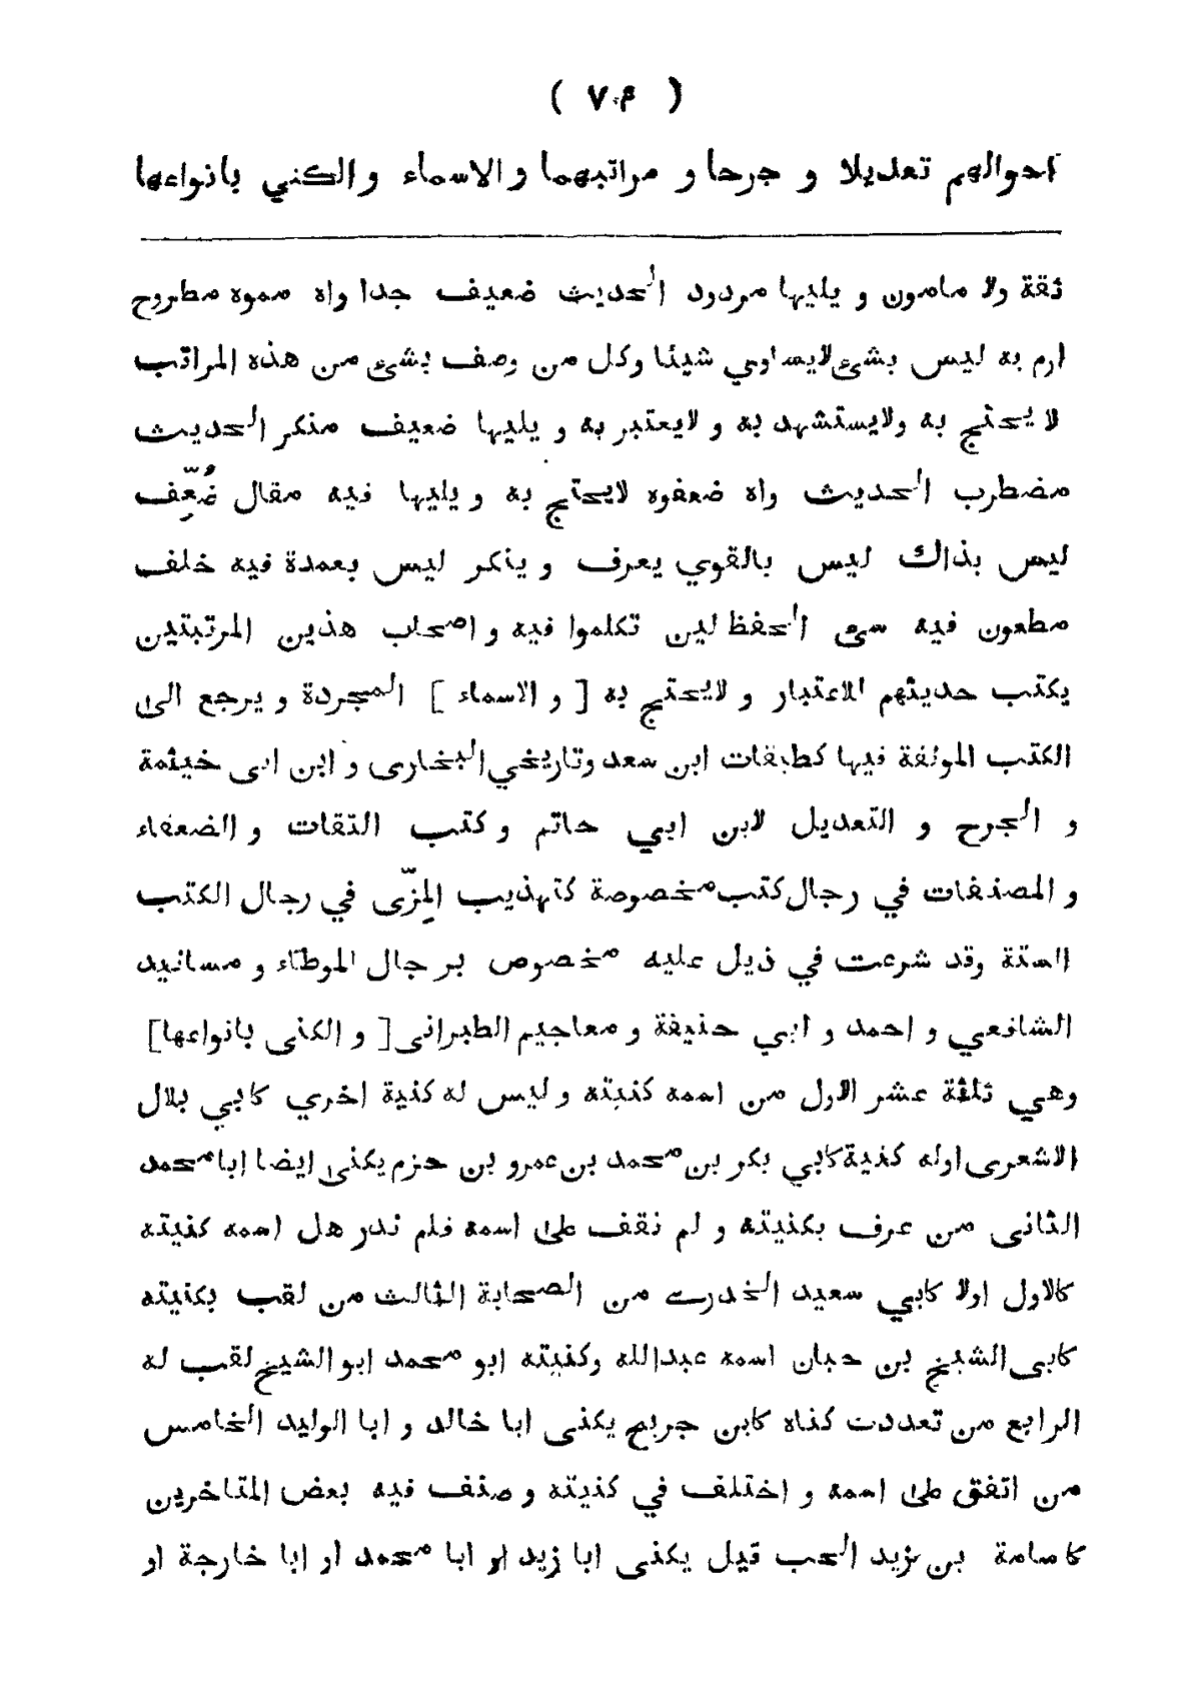 ( ٧٠٣ )
احوالهم تعديلا و جرحا و مراتبهما و الاسماء و الكني بانواعها
ثقة ولا مامون و يليها مردود الحديث ضعيف جدا واه مموه مطروح
ارم به ليس بشئ لايساوي شيئا وكل من وصف بشئ من هذه المراتب
لا يحتج به ولايستشهد به و لايعتبر به و يليها ضعيف منكر الحديث
مضطرب الحديث واه ضعفوه لايحتج به و يليها فيه مقال ضُعِّف
ليس بذاك ليس بالقوي يعرف و ينكر ليس بعمدة فيه خلف
مطعون فيه سئ الحفظ لين تكلموا فيه و اصحاب هذين المرتبتين
يكتب حديثهم للاعتبار و لايحتج به [ و الاسماء ] المجردة و يرجع الى
الكتب المولفة فيها كطبقات ابن سعد وتاريخي البخارى و ابن ابى خيثمة
و الجرح و التعديل لابن ابي حاتم و كتب الثقات و الضعفاء
و المصنفات في رجال كتب مخصوصة كتهذيب المِزّى في رجال الكتب
الستة وقد شرعت في ذيل عليه مخصوص برجال الموطاء و مسانيد
الشافعي و احمد و ابي حنيفة و معاجيم الطبرانى [ و الكنى بانواعها ]
وهي ثلثة عشر الاول من اسمه كنيته و ليس له كنية اخري كابي بلال
الاشعرى اوله كنية كابي بكر بن محمد بن عمرو بن حزم يكنى ايضا ابا محمد
الثانى من عرف بكنيته و لم نقف على اسمه فلم ندر هل اسمه كنيته
كالاول اولا كابي سعيد الخدرے من الصحابة الثالث من لقب بكنيته
كابى الشيخ بن حبان اسمه عبدالله وكنيته ابو محمد ابو الشيخ لقب له
الرابع من تعددت كناه كابن جريج يكنى ابا خالد و ابا الوليد الخامس
من اتفق على اسمه و اختلف في كنيته و صنف فيه بعض المتاخرين
كاسامة بن زيد الحب قيل يكنى ابا زيد او ابا محمد او ابا خارجة او